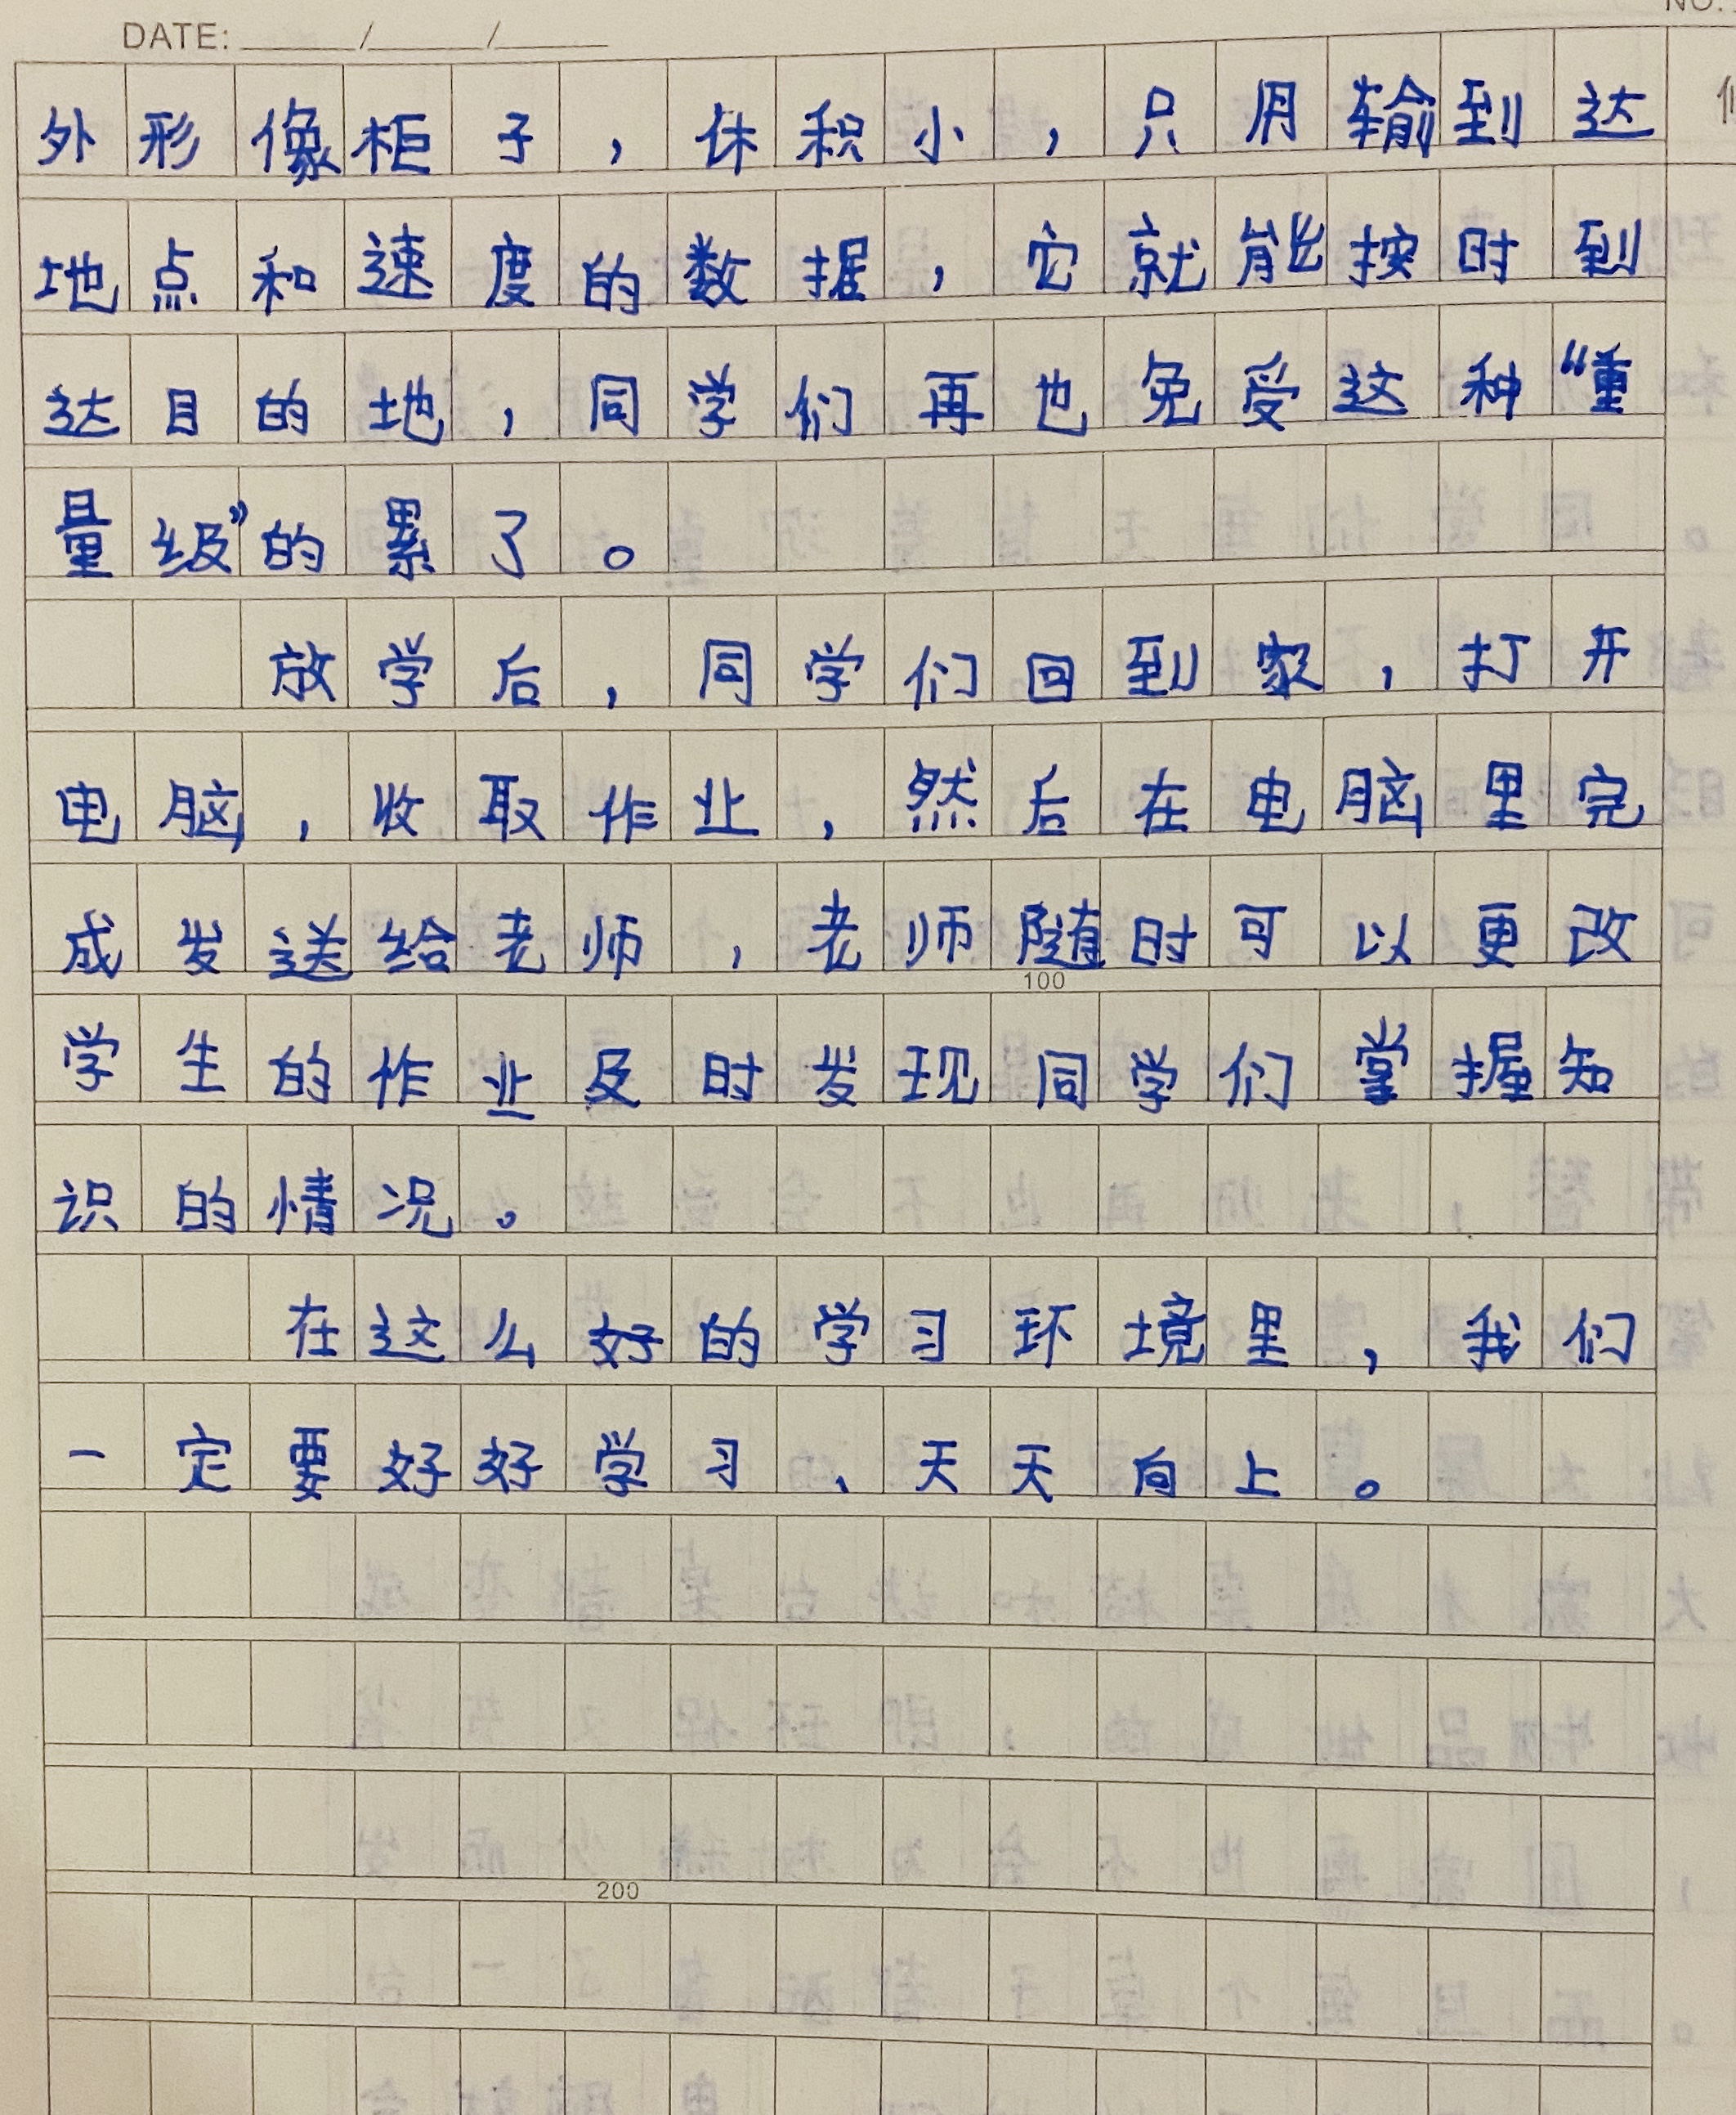 DATE: ____/____/____
NO.
外形像柜子，休积小，只用输到达
地点和速度的数据，它就能按时到
达目的地，同学们再也免受这种“重
量级”的累了。
放学后，同学们回到家，打开
电脑，收取作业，然后在电脑里完
成发送给老师，老师随时可以更改
100
学生的作业及时发现同学们掌握知
识的情况。
在这么好的学习环境里，我们
一定要好好学习、天天向上。
200